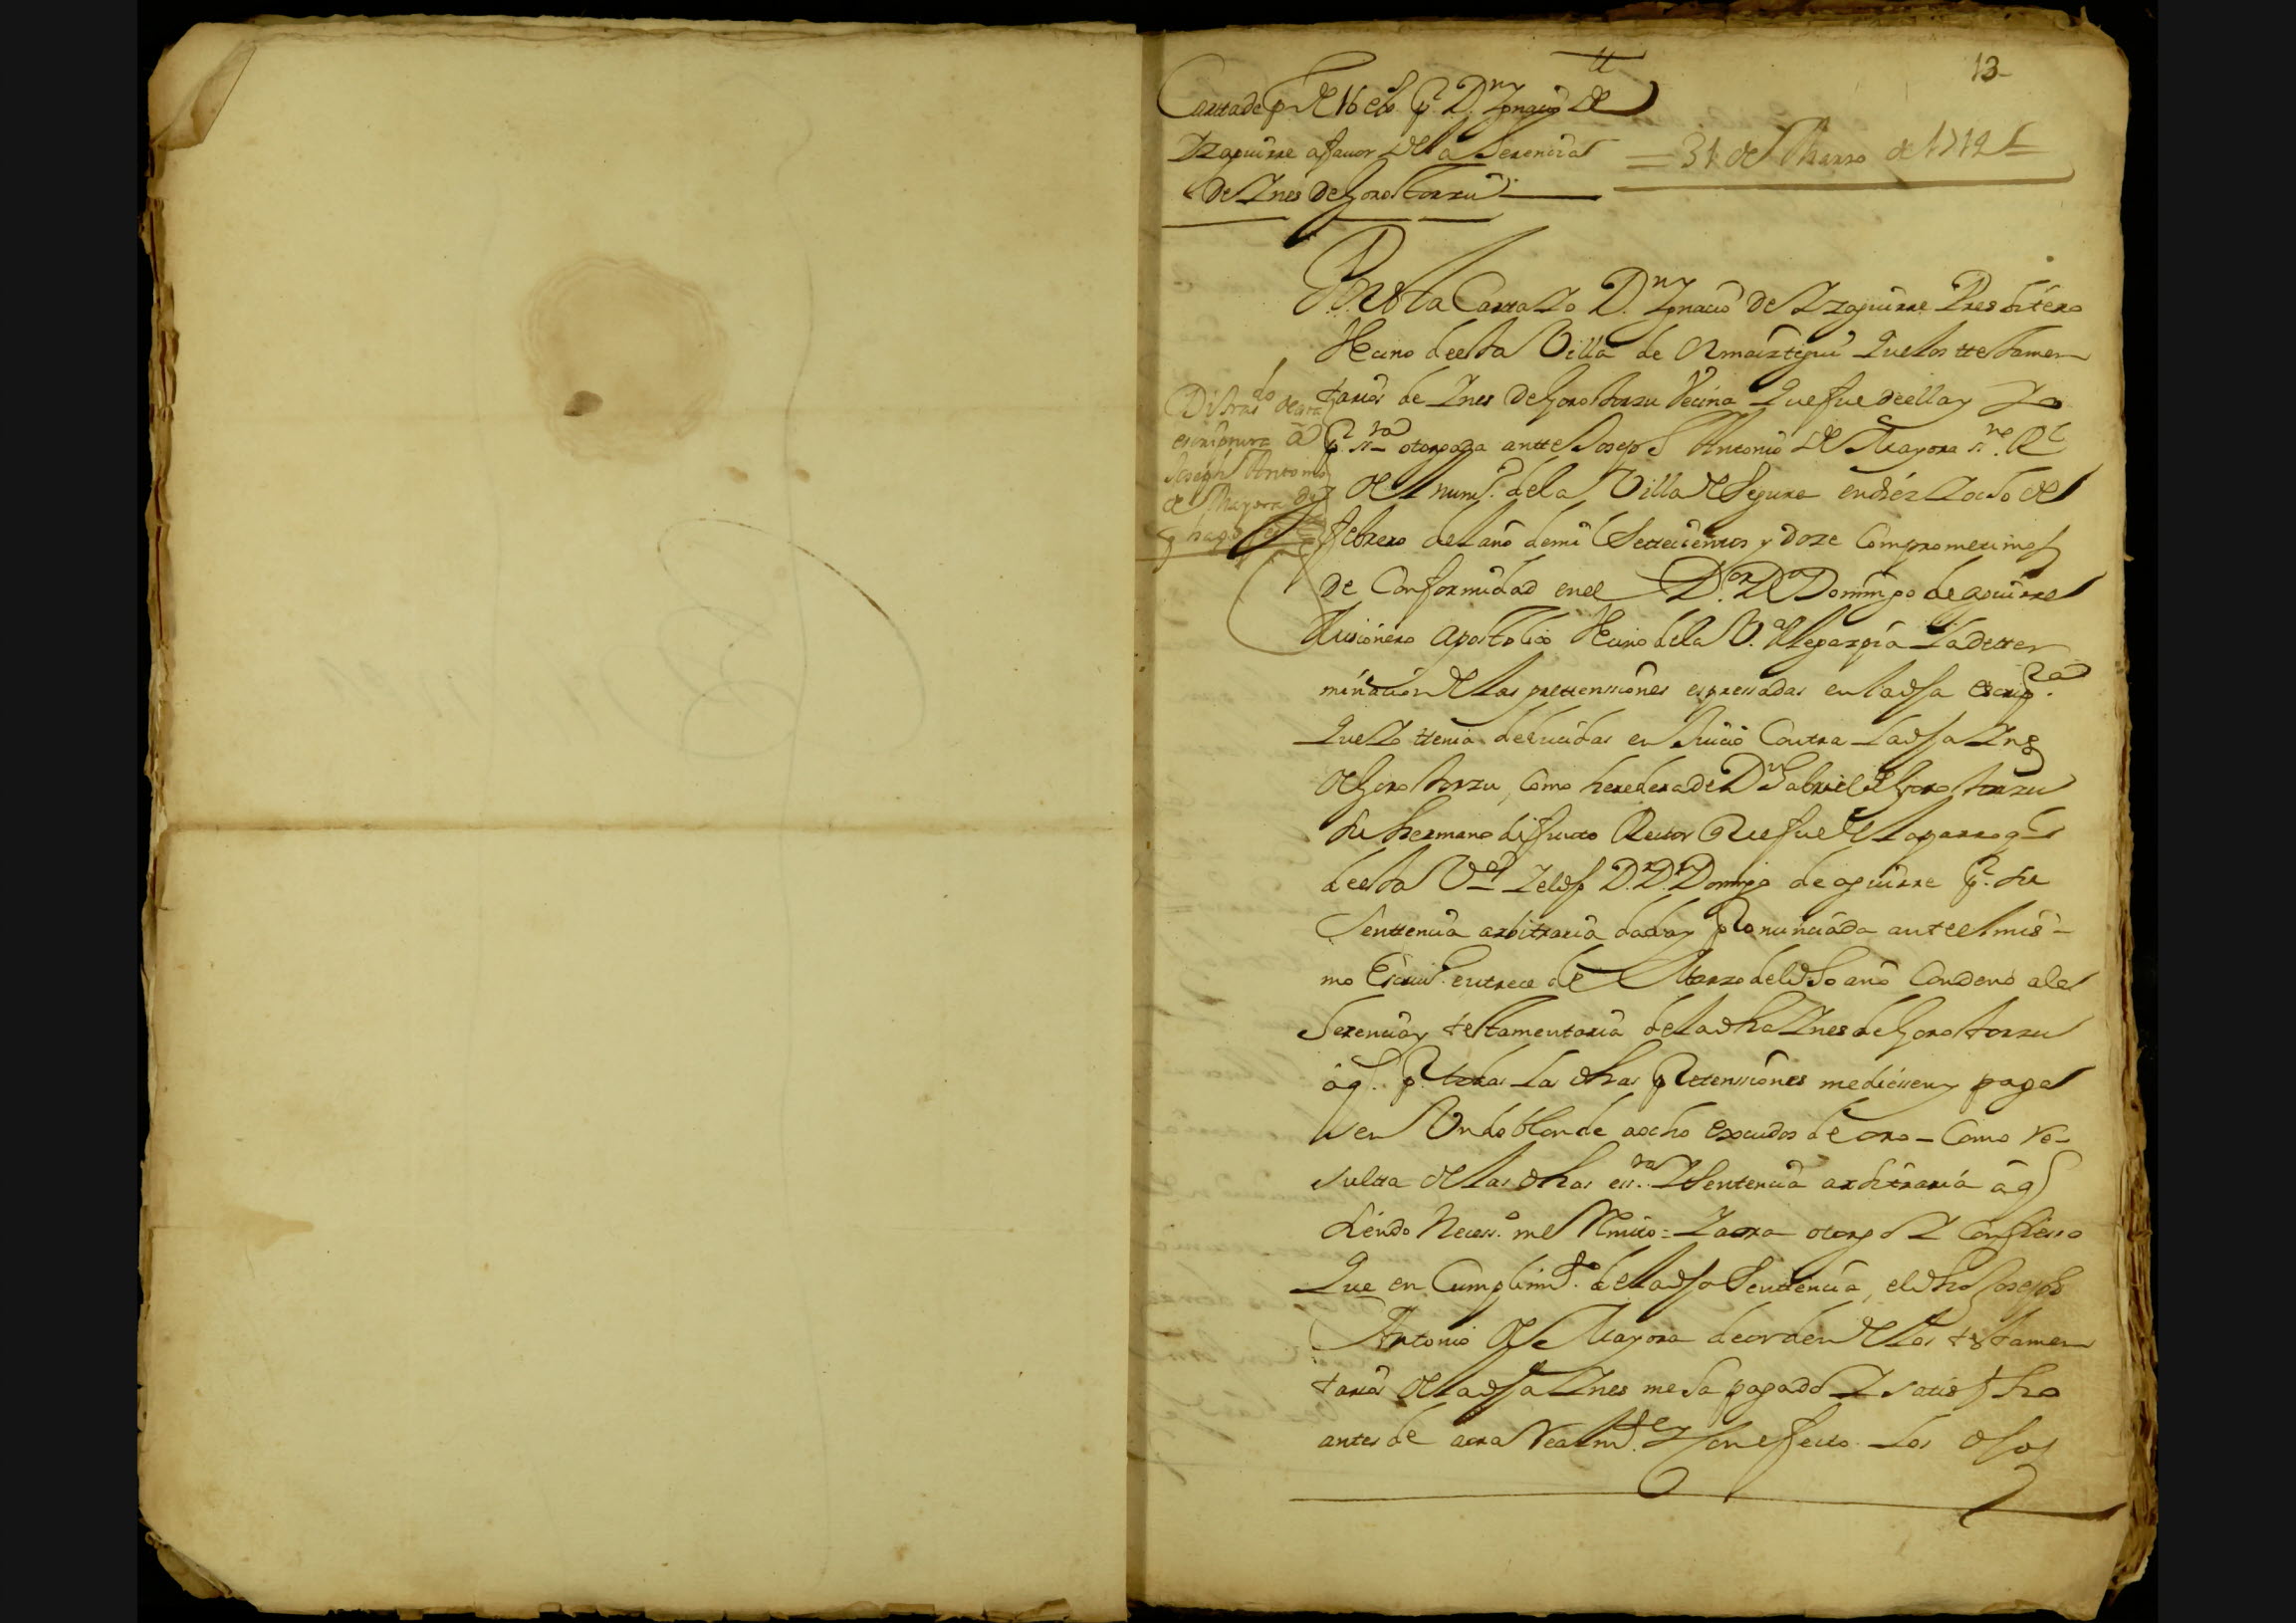 13
Carta de p. de 16 es.os p.r D.n Ignacio de
Yzaguirre a fauor de la herencia
de Ynes de Gorostorzu
= 31 de Marzo de 1712 =
Por esta Carta Yo D.n Ygnacio de Yzaguirre Presbitero
Vecino de esta Villa de Ormaiztegui Que los ttestamen
tarios de Ynes de Gorostorzu Vecina Que fue de ella y Yo
p.r ss.ra otorgada antte Joseph Antonio de Mayora ss.no R.l
del num.o de la Villa de Segura en diez y ocho de
febrero del año de mil Settecientos y doze Comprometimos
de Conformidad en el D.or D.n Domingo de aguirre
Misionero apostolico Vecino de la V.a de legazpia La detter
minacion de las prettenssiones espressadas en la dha escrip.ra
Que Yo ttenia deducidas en Juicio Contra La dha Ynes
de Gorostorzu, Como heredera de D.n Gabriel de Gorostorzu
su hermano difunto Rector Que fue de la parroq.l
de esta V.a Y el dho D.r D.n Domingo de aguirre p.r su
Senttencia arbitraria dada y pronunciada ante el mis-
mo Escriu.o en trece de Marzo del dho año Condeno a la
herencia y testamentaria de la dha Ynes de Gorostorzu
a q. p.r todas Las dhas pretenssiones me diessen y paga
sen Un doblon de a ocho escudos de oro - Como re-
sultta de las dhas ess.ras Y Sentencia arbitraria a q
siendo Necess.o me Remito = Y aora otorgo Y Confiesso
Que en Cumplim.to de la dha Senttencia, el dho Joseph
Antonio de Mayora de orden de los testamen
tarios de la dha Ynes me ha pagado Y satisfho
antes de aora realm.te y Con efecto Los dhos
Di tras.do de esta
escriptura a
Joseph Antonio
de Mayora de
q hago fee